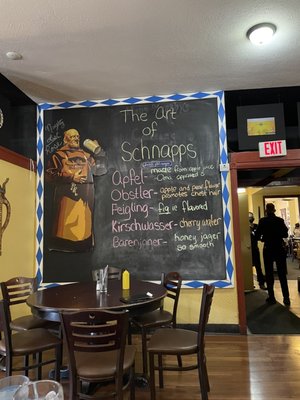 The Art
of
Schnapps
EXIT
Apfel - made from apple juice
Obstler - apple and pear flavor
promotes chest hair
Feigling - fig ie flavored
Kirschwasser - cherry water
Bärenjäner - honey jager
so smooth